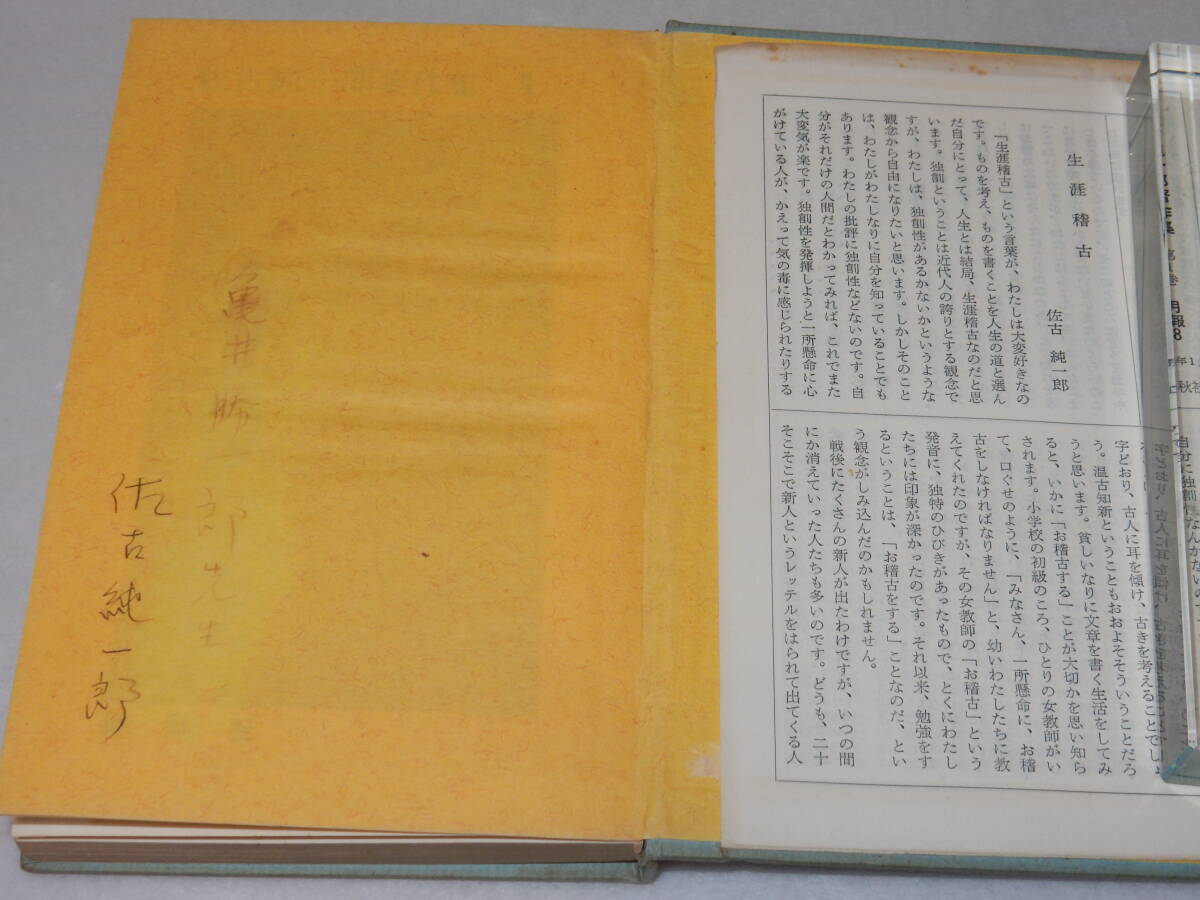 亀井勝一郎先生
佐古純一郎
生涯稽古
佐古 純一郎
「生涯稽古」という言葉が、わたしは大変好きなの
です。ものを考え、ものを書くことを人生の道と選ん
だ自分にとって、人生とは結局、生涯稽古なのだと思
います。独創ということは近代人の誇りとする観念で
すが、わたしは、独創性があるかないかというような
観念から自由になりたいと思います。しかしそのこと
は、わたしがわたしなりに自分を知っていることでも
あります。わたしの批評に独創性などないのです。自
分がそれだけの人間だとわかってみれば、これでまた
大変気が楽です。独創性を発揮しようと一所懸命に心
がけている人が、かえって気の毒に感じられたりする
字どおり、古人に耳を傾け、古きを考えることでしょ
う。温古知新ということもおおよそそういうことだろ
うと思います。貧しいなりに文章を書く生活をしてみ
ると、いかに「お稽古する」ことが大切かを思い知ら
されます。小学校の初級のころ、ひとりの女教師がい
て、口ぐせのように、「みなさん、一所懸命に、お稽
古をしなければなりません」と、幼いわたしたちに教
えてくれたのですが、その女教師の「お稽古」という
発音に、独特のひびきがあったもので、とくにわたし
たちには印象が深かったのです。それ以来、勉強をす
るということは、「お稽古をする」ことなのだ、とい
う観念がしみ込んだのかもしれません。
戦後にたくさんの新人が出たわけですが、いつの間
にか消えていった人たちも多いのです。どうも、二十
そこそこで新人というレッテルをはられて出てくる人
月報8